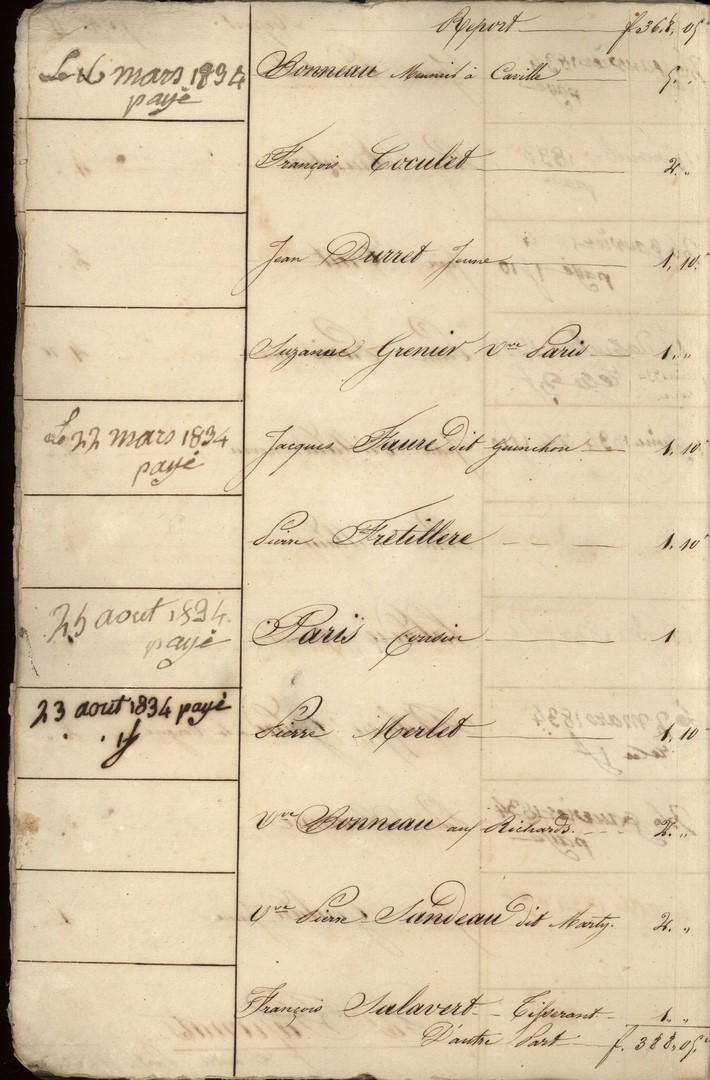 Report f. 368, 05
Le 16 mars 1834
payé
Bonneau Meunier à Caville 5. "
François Coculet 2. "
Jean Durret Jeune 1, 10
Suzanne Grenier Vve Paris 1. "
Le 22 mars 1834
payé
Jacques Faure dit Guinchon 1. 10
Pierre Frétillere 1. 10
25 aout 1834.
payé
Paris Cousin 1
23 aout 1834 payé
1f
Pierre Merlet 1. 10
Vve Bonneau aux Richards 2. "
Vve Pierre Sandeau dit Marty. 2. "
François Salavert Tisserant 1. "
D'autre Part f. 388, 05